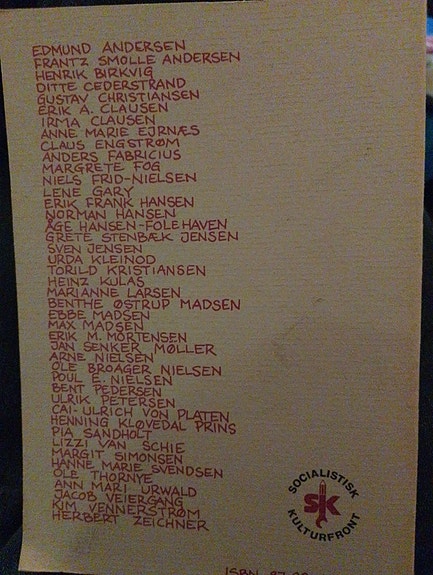 EDMUND ANDERSEN
FRANTZ SMOLLE ANDERSEN
HENRIK BIRKVIG
DITTE CEDERSTRAND
GUSTAV CHRISTIANSEN
ERIK A. CLAUSEN
IRMA CLAUSEN
ANNE MARIE EJRNÆS
CLAUS ENGSTRØM
ANDERS FABRICIUS
MARGRETE FOG
NIELS FRID-NIELSEN
LENE GARY
ERIK FRANK HANSEN
NORMAN HANSEN
ÅGE HANSEN-FOLEHAVEN
GRETE STENBÆK JENSEN
SVEN JENSEN
URDA KLEINOD
TORILD KRISTIANSEN
HEINZ KULAS
MARIANNE LARSEN
BENTHE ØSTRUP MADSEN
EBBE MADSEN
MAX MADSEN
ERIK M. MORTENSEN
JAN SENKER MØLLER
ARNE NIELSEN
OLE BROAGER NIELSEN
POUL E. NIELSEN
BENT PEDERSEN
ULRIK PETERSEN
CAI-ULRICH VON PLATEN
HENNING KLØVEDAL PRINS
PIA SANDHOLT
LIZZI VAN SCHIE
MARGIT SIMONSEN
HANNE MARIE SVENDSEN
OLE THORNYE
ANN MARI URWALD
JACOB VEIERGANG
KIM VENNERSTRØM
HERBERT ZEICHNER
SOCIALISTISK
SK
KULTURFRONT
ISBN